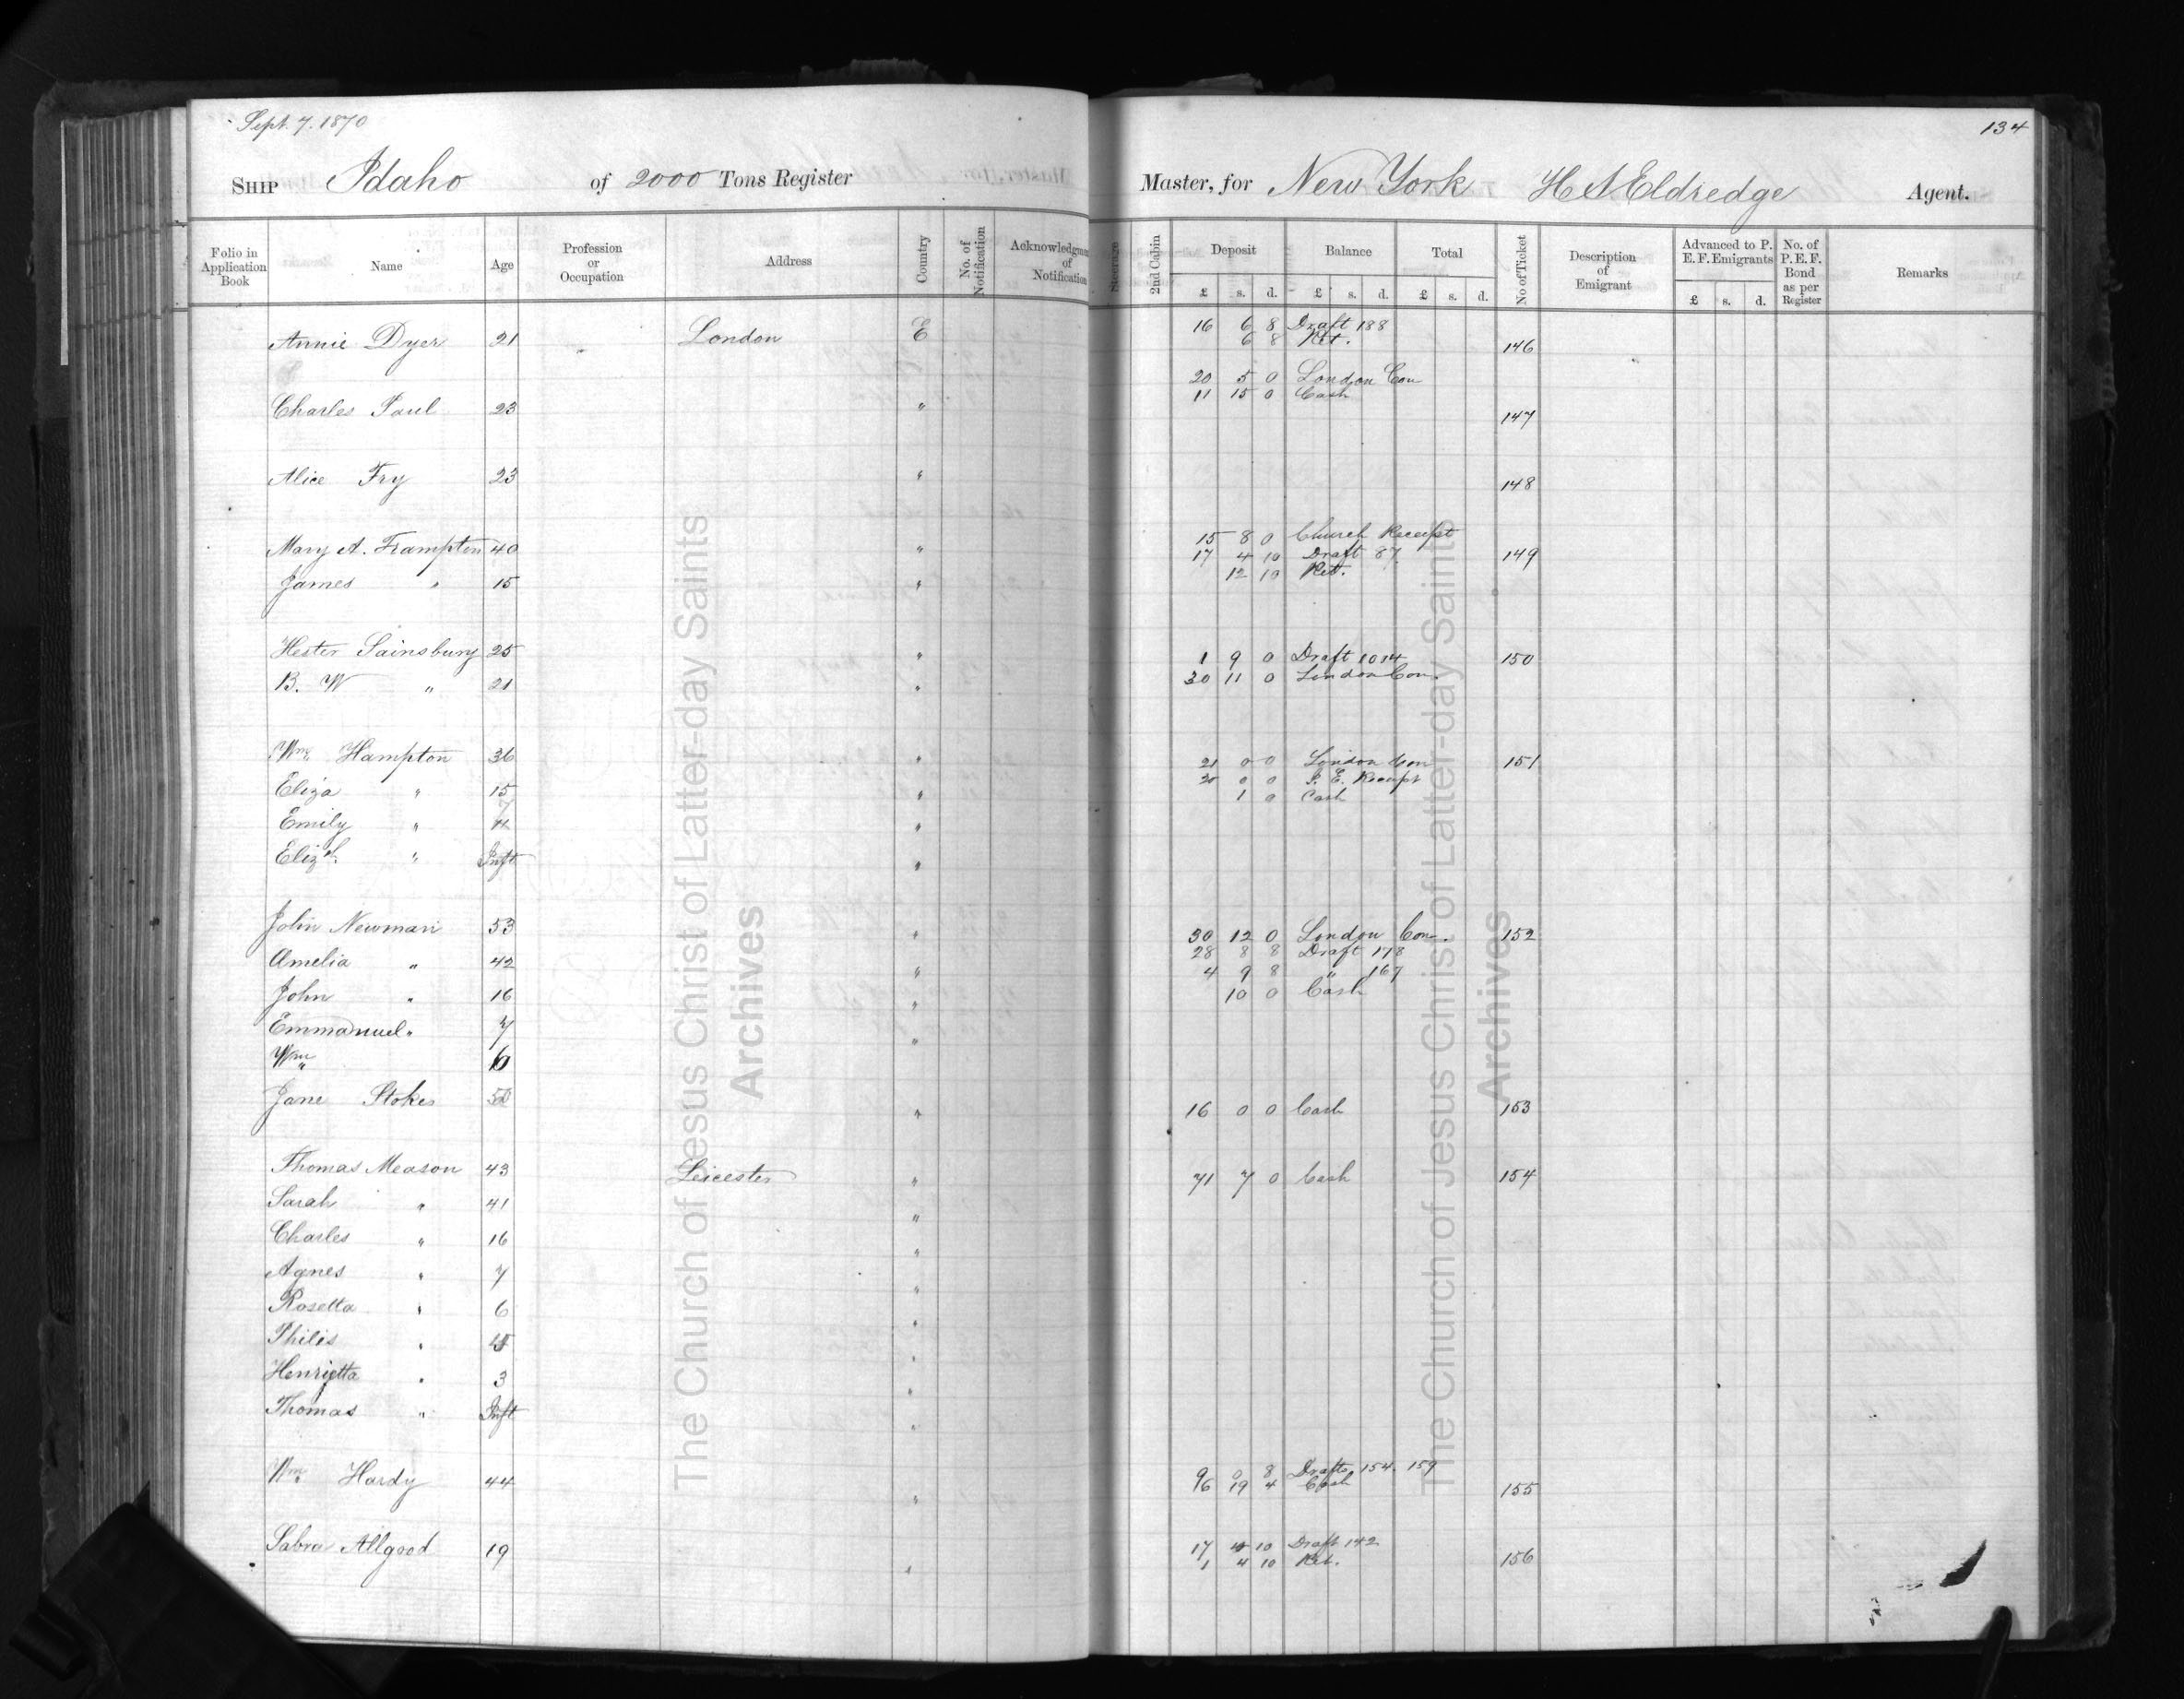 Sept. 7. 1870
134
SHIP Idaho of 2000 Tons Register Master, for New York H S Eldredge Agent.
Folio in Application Book Name Age Profession or Occupation Address Country No. of Notification Acknowledgment of Notification Steerage 2nd Cabin Deposit Balance Total No of Ticket Description of Emigrant Advanced to P. E. F. Emigrants No. of P. E. F. Bond as per Register Remarks
£ s. d. £ s. d. £ s. d. £ s. d.
16 6 8 Draft 188
Annie Dyer 21 London E 6 8 Ret. 146
20 5 0 London Con
11 15 0 Cash
Charles Paul 23 " 147
Alice Fry 23 " 148
15 8 0 Church Receipt
Mary A. Frampton 40 " 17 4 10 Draft 87 149
12 10 Ret.
James " 15 "
Hester Sainsbury 25 " 1 9 0 Draft 1014 150
B. W " 21 " 30 11 0 London Con.
Wm. Hampton 36 " 21 0 0 London Con 151
20 0 0 P. E. Receipt
Eliza " 15 " 1 0 Cash
Emily " 7 "
Elizth. " Inft "
John Newman 53 " 30 12 0 London Con. 152
28 8 8 Draft 178
Amelia " 42 " 4 9 8 " 167
John " 16 " 10 0 Cash
Emmanuel " 7 "
Wm " 6
Jane Stokes 50 " 16 0 0 Cash 153
Thomas Meason 43 Leicester " 71 7 0 Cash 154
Sarah " 41 "
Charles " 16 "
Agnes " 7 "
Rosetta " 6 "
Philis " "
Henrietta " 3 "
Thomas " Inft "
9 0 8 Drafts 154. 159
Wm. Hardy 44 " 96 19 4 Cash 155
Sabra Allgood 19 " 17 4 10 Draft 142
1 4 10 Ret. 156
The Church of Jesus Christ of Latter-day Saints
Archives
The Church of Jesus Christ of Latter-day Saints
Archives